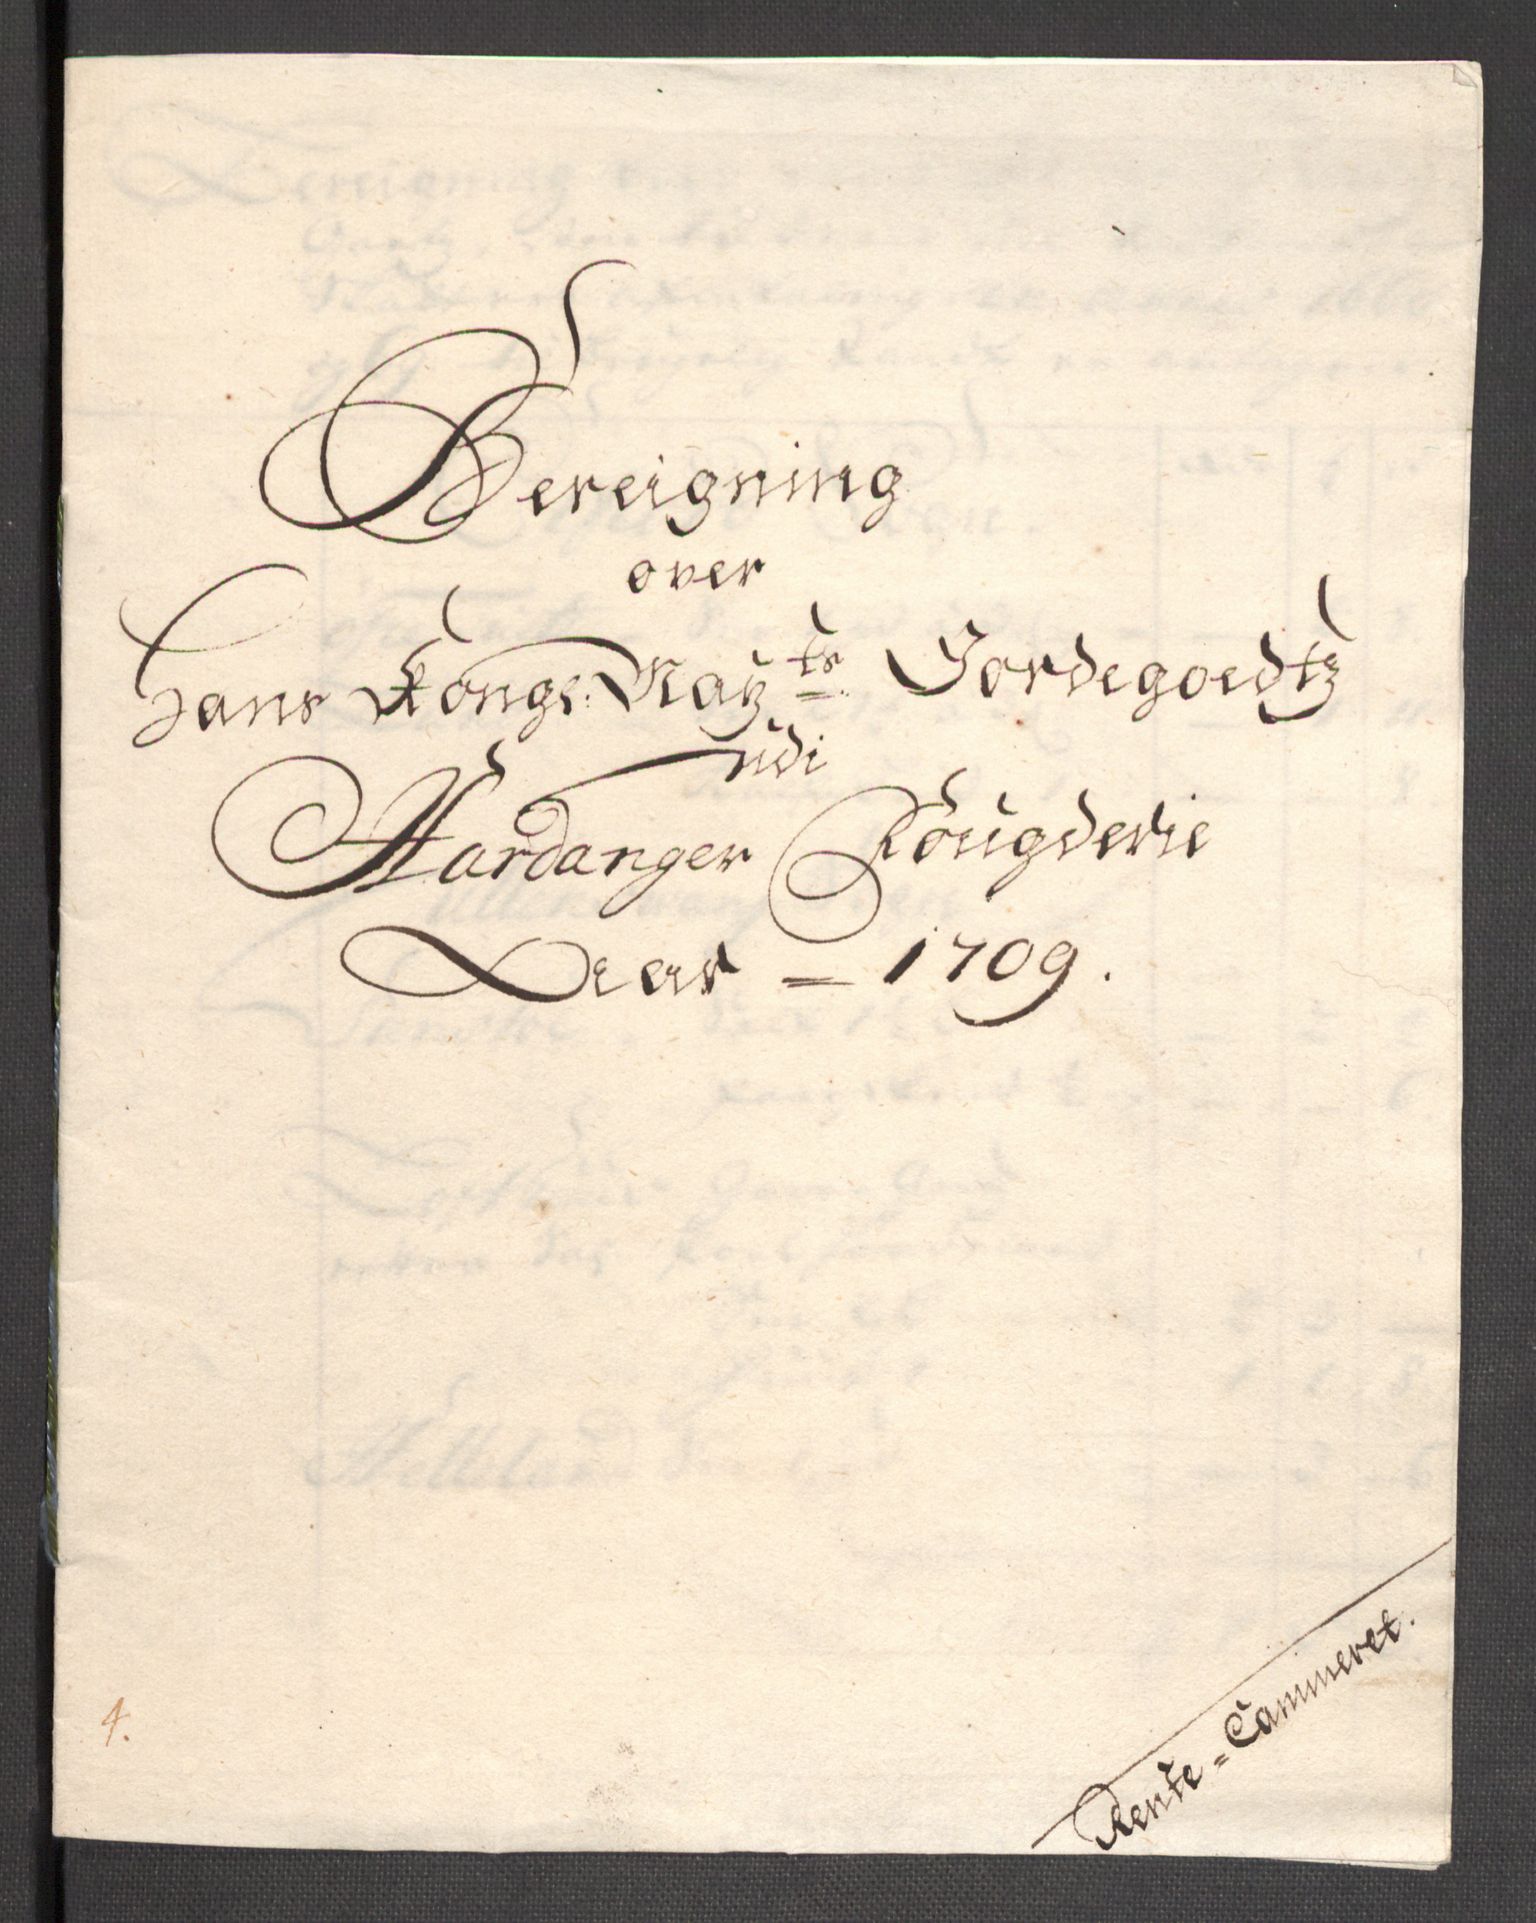 Bereigning
over
Hans Kongl: Maÿ=ts Jordegoedtz
udi
Hardanger Fougderie
Aar = 1709.
4.
Rente=Cammeret.